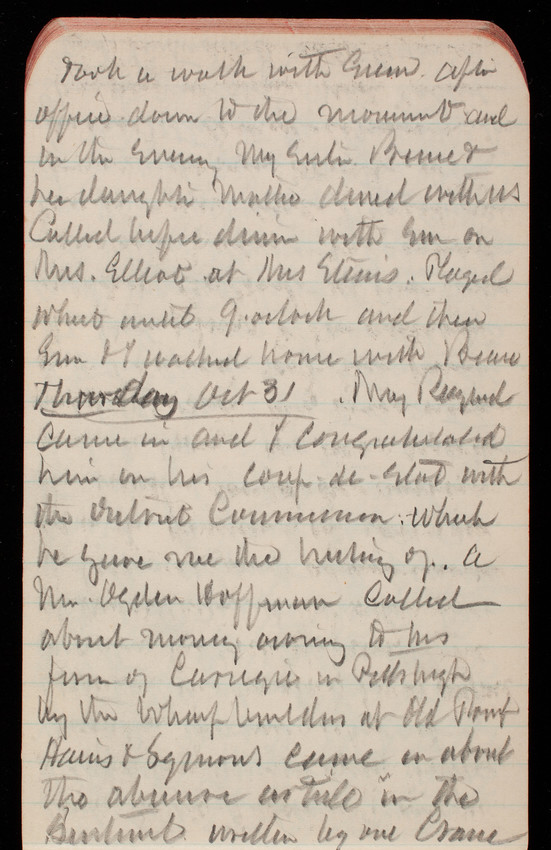 Took a walk with Emm. after
office down to the monument and
in the Evening My Sister Bowie &
her daughter Mattie dined with us
Called before dinner with Em on
Mrs. Elliot at Mrs . Played
Whist until 9 o'clock and then
Em & I walked home with Bowie
Thursday Oct 31 . Maj Raymond
came in and I congratulated
him on his coup-de-etat with
the District Commission. Which
he gave me the history of. A
Mr. Ogden Hoffman called
about money owing to his
firm of Carnegie in Pittsburgh
by the Wharf builders at Old Point
Hains & Symons came in about
the abusive article in the
Sentinel written by one Crane